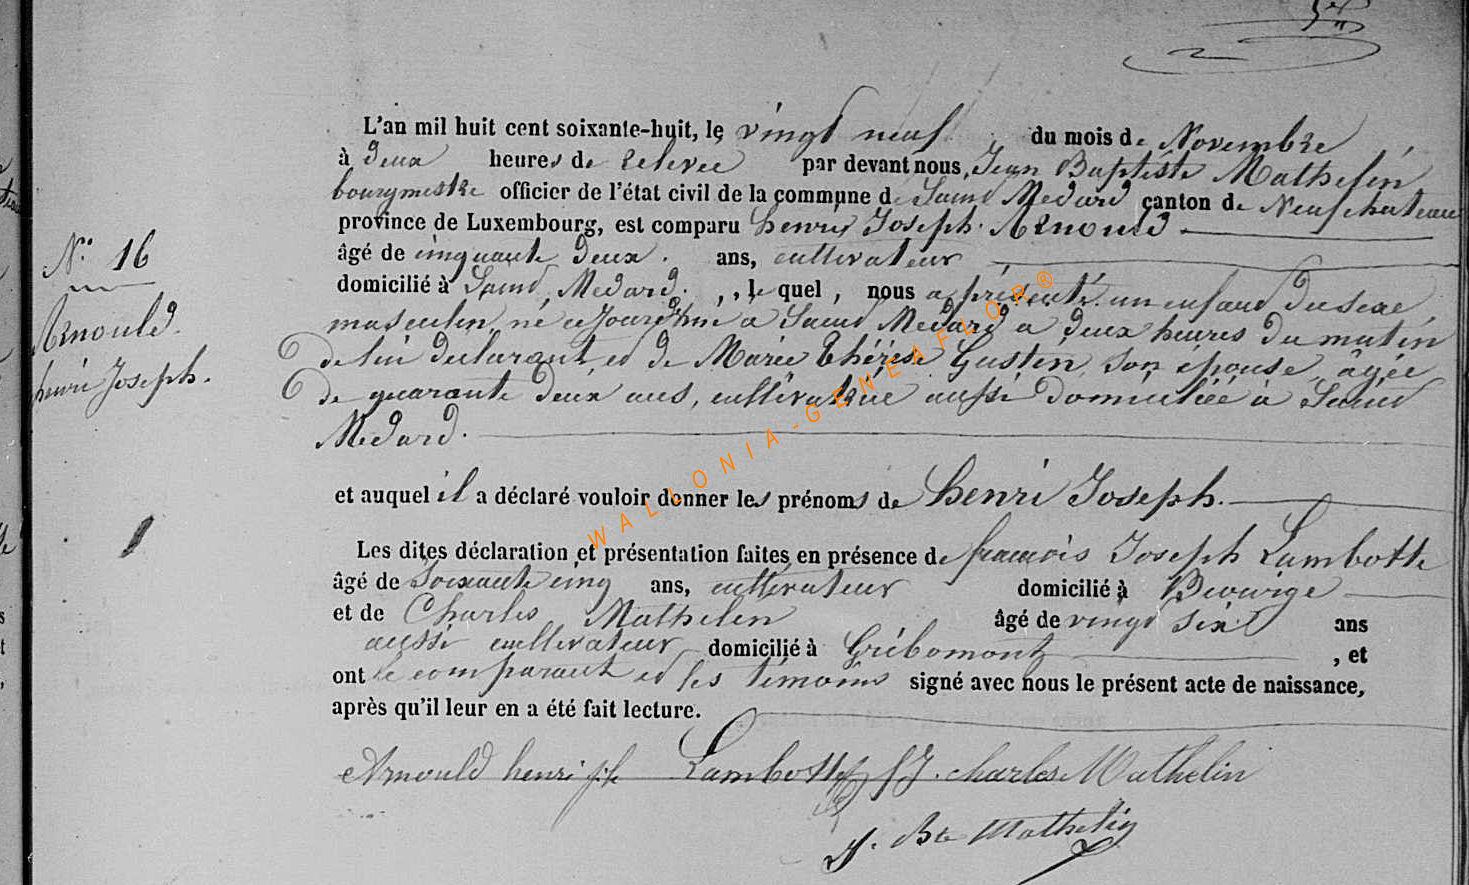 L'an mil huit cent soixante-huit, le vingt neuf du mois de Novembre
à deux heures de relevée par devant nous, Jean Baptiste Mathelin,
bourgmestre officier de l'état civil de la commune de Saint Médard canton de Neufchateau
province de Luxembourg, est comparu henri Joseph Arnould
N° 16
âgé de cinquante deux ans, cultivateur
domicilié à Saint Médard, le quel, nous a présenté un enfant du sexe
Arnould
masculin, né cejourd'hui à Saint Médard à deux heures du matin
de lui déclarant, et de Marie Thérèse Gustin son épouse, âgée
henri Joseph.
de quarante deux ans, cultivatrice aussi domiciliée à Saint
Médard.
et auquel il a déclaré vouloir donner les prénoms de henri Joseph.
Les dites déclaration et présentation faites en présence de françois Joseph Lambotte
âgé de soixante cinq ans, cultivateur domicilié à
et de Charles Mathelin âgé de vingt six ans
aussi cultivateur domicilié à Gribomont, et
ont le comparant et les témoins signé avec nous le présent acte de naissance,
après qu'il leur en a été fait lecture.
Arnould henri jph Lambotte f J. charles Mathelin
J. Bte Mathelin
WALLONIA-GENEAFLOR®